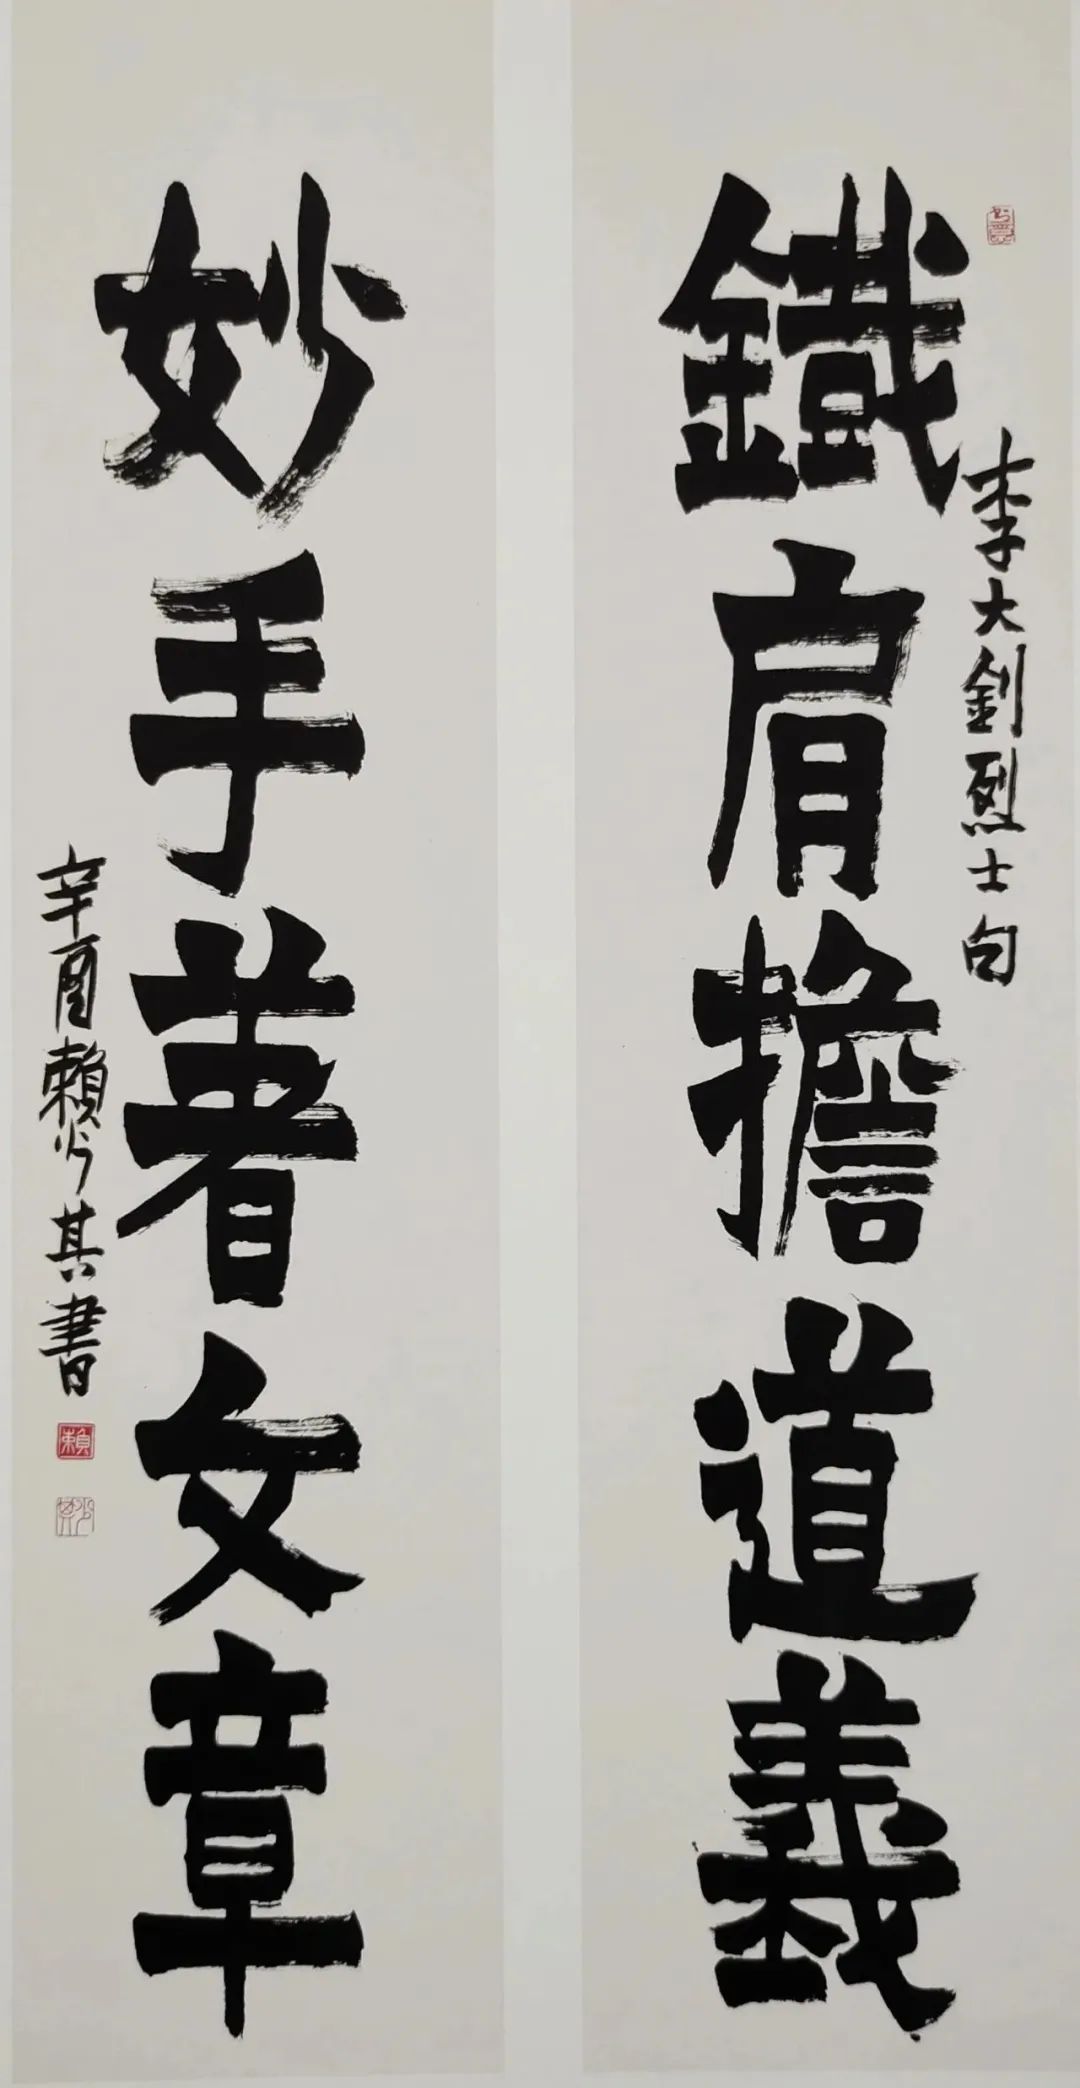 鐵肩擔道義
李大釗烈士句
妙手著文章
辛酉賴少其書
賴
少其